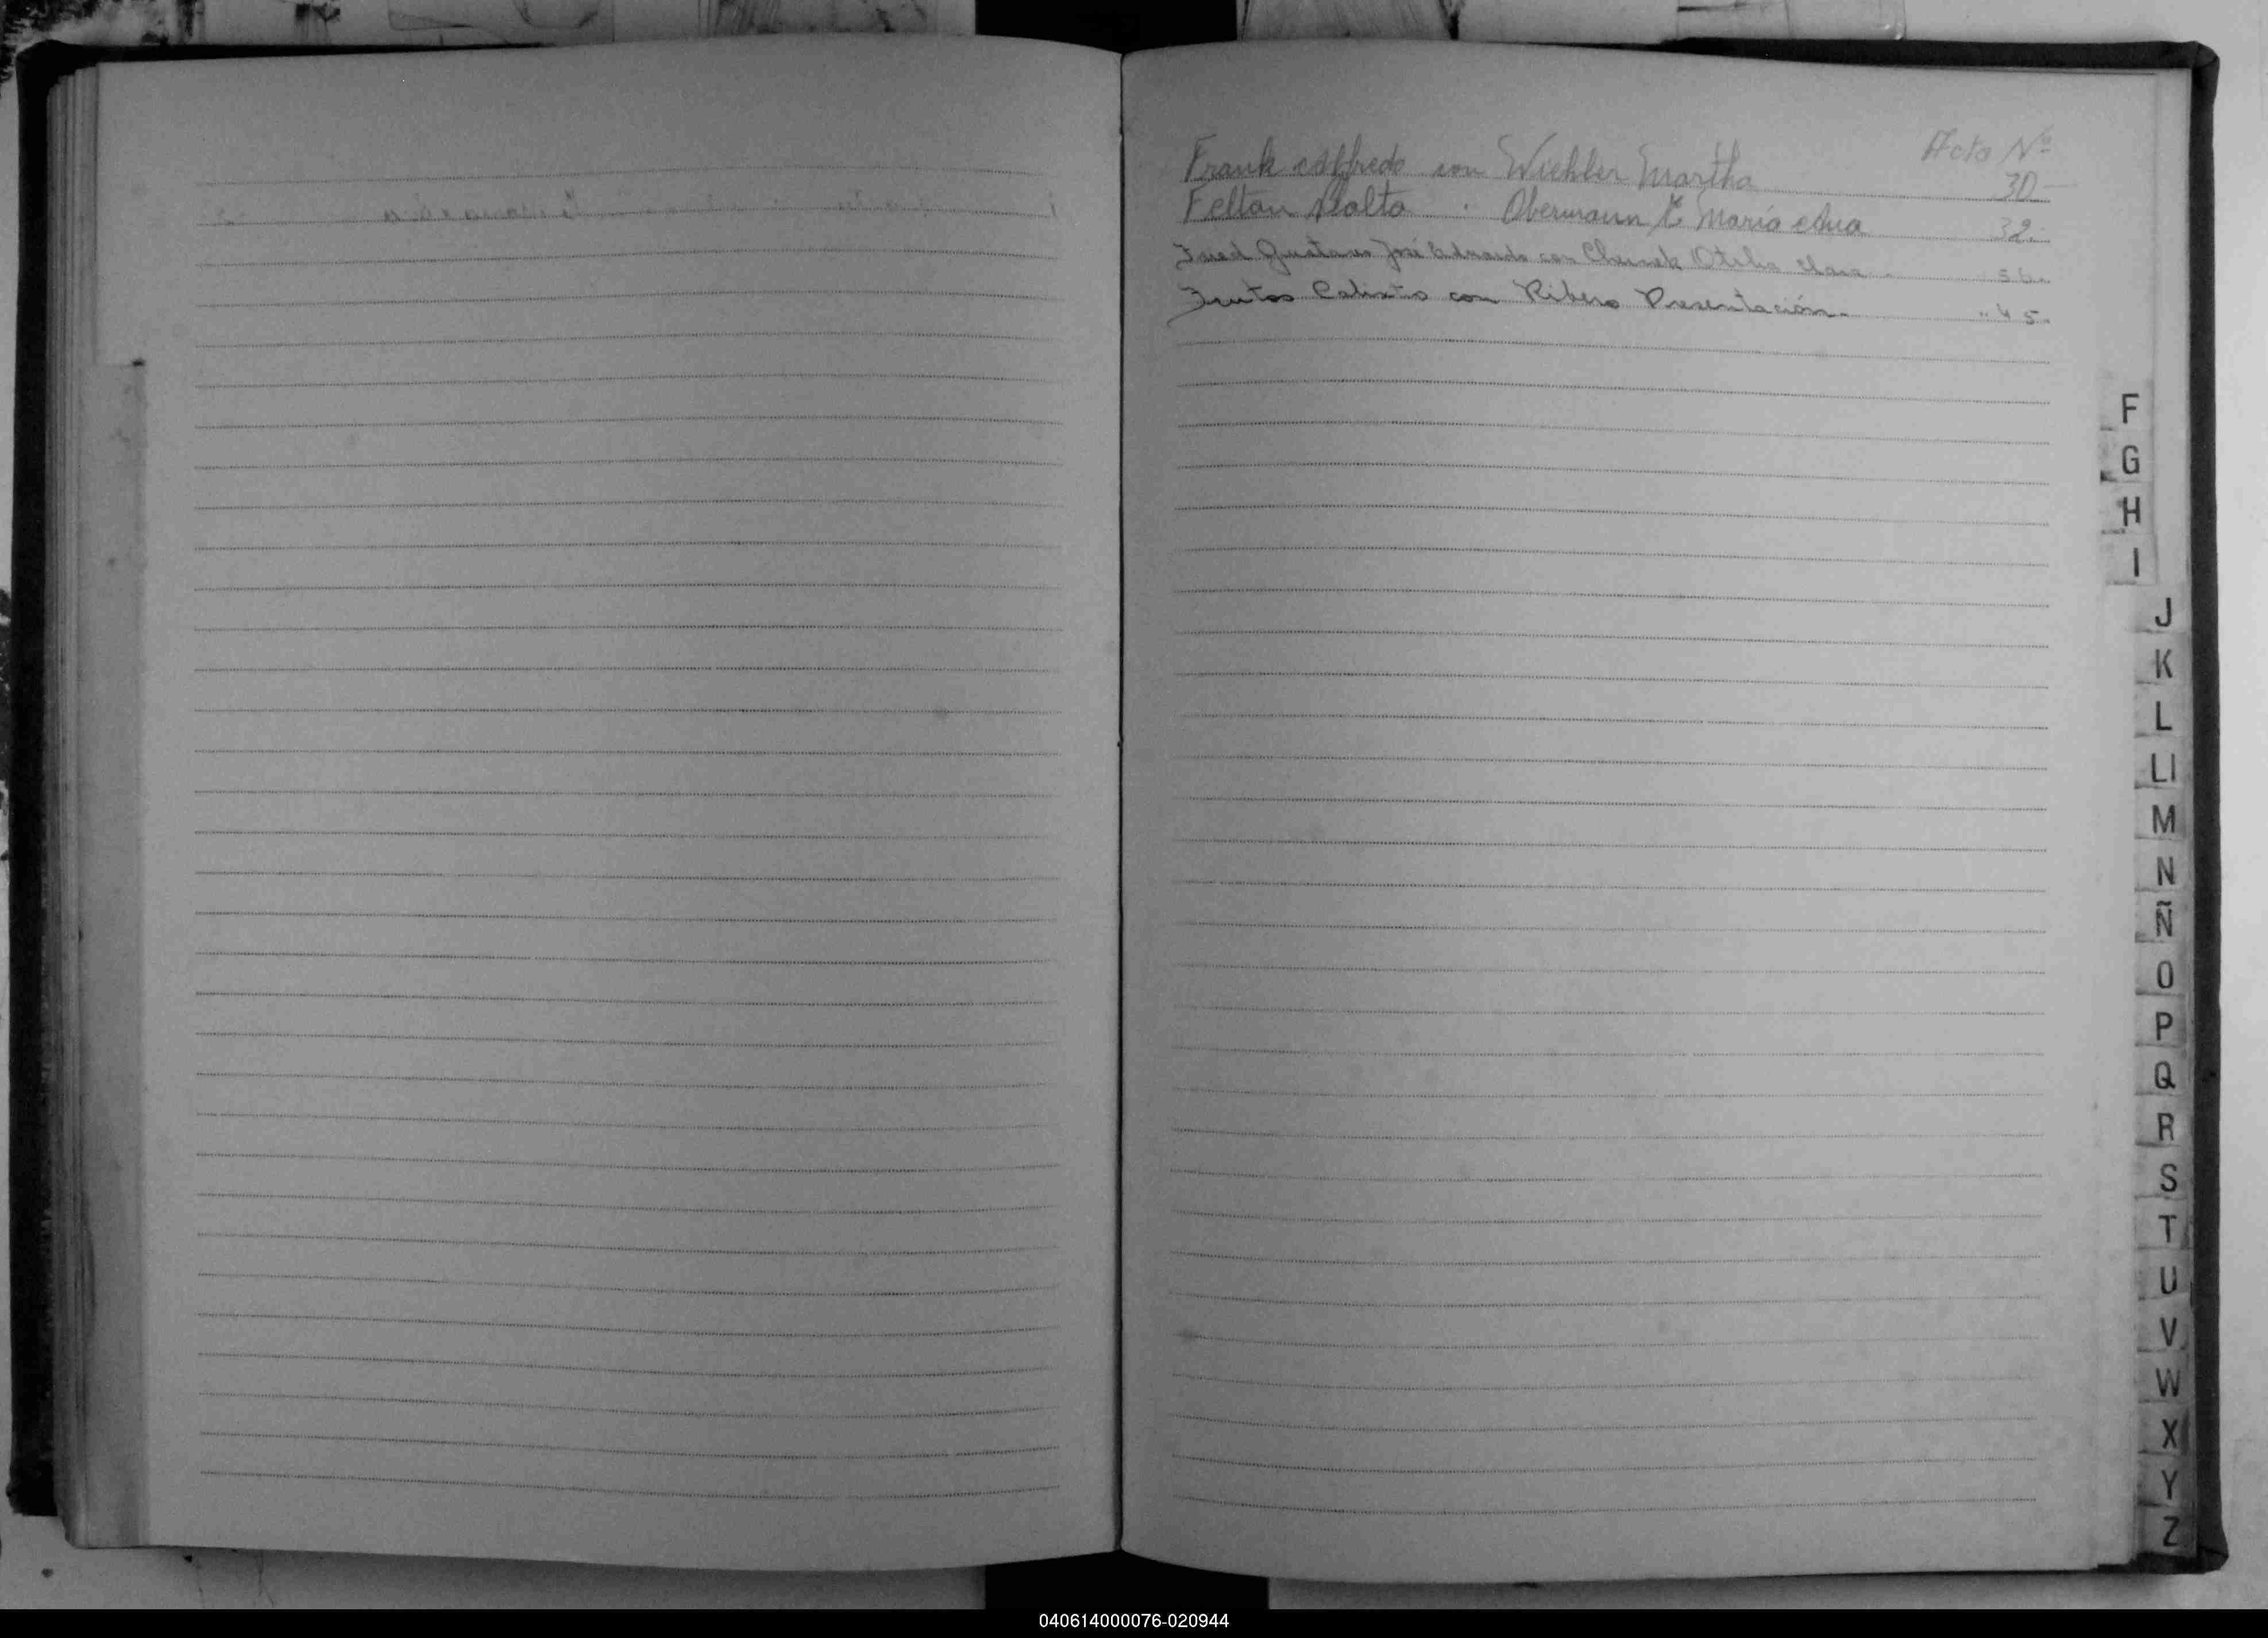 Acta Nº
Frank Alfredo con Wiehler Martha 30
Feltan Valto " Obermann E María Ana 32.
Gustavo José Eduardo con Otilia Clara 56.
Frutos Calixto con Ribero Presentación. " 45.
F
G
H
I
J
K
L
Ll
M
N
Ñ
O
P
Q
R
S
T
U
V
W
X
Y
Z
040614000076-020944